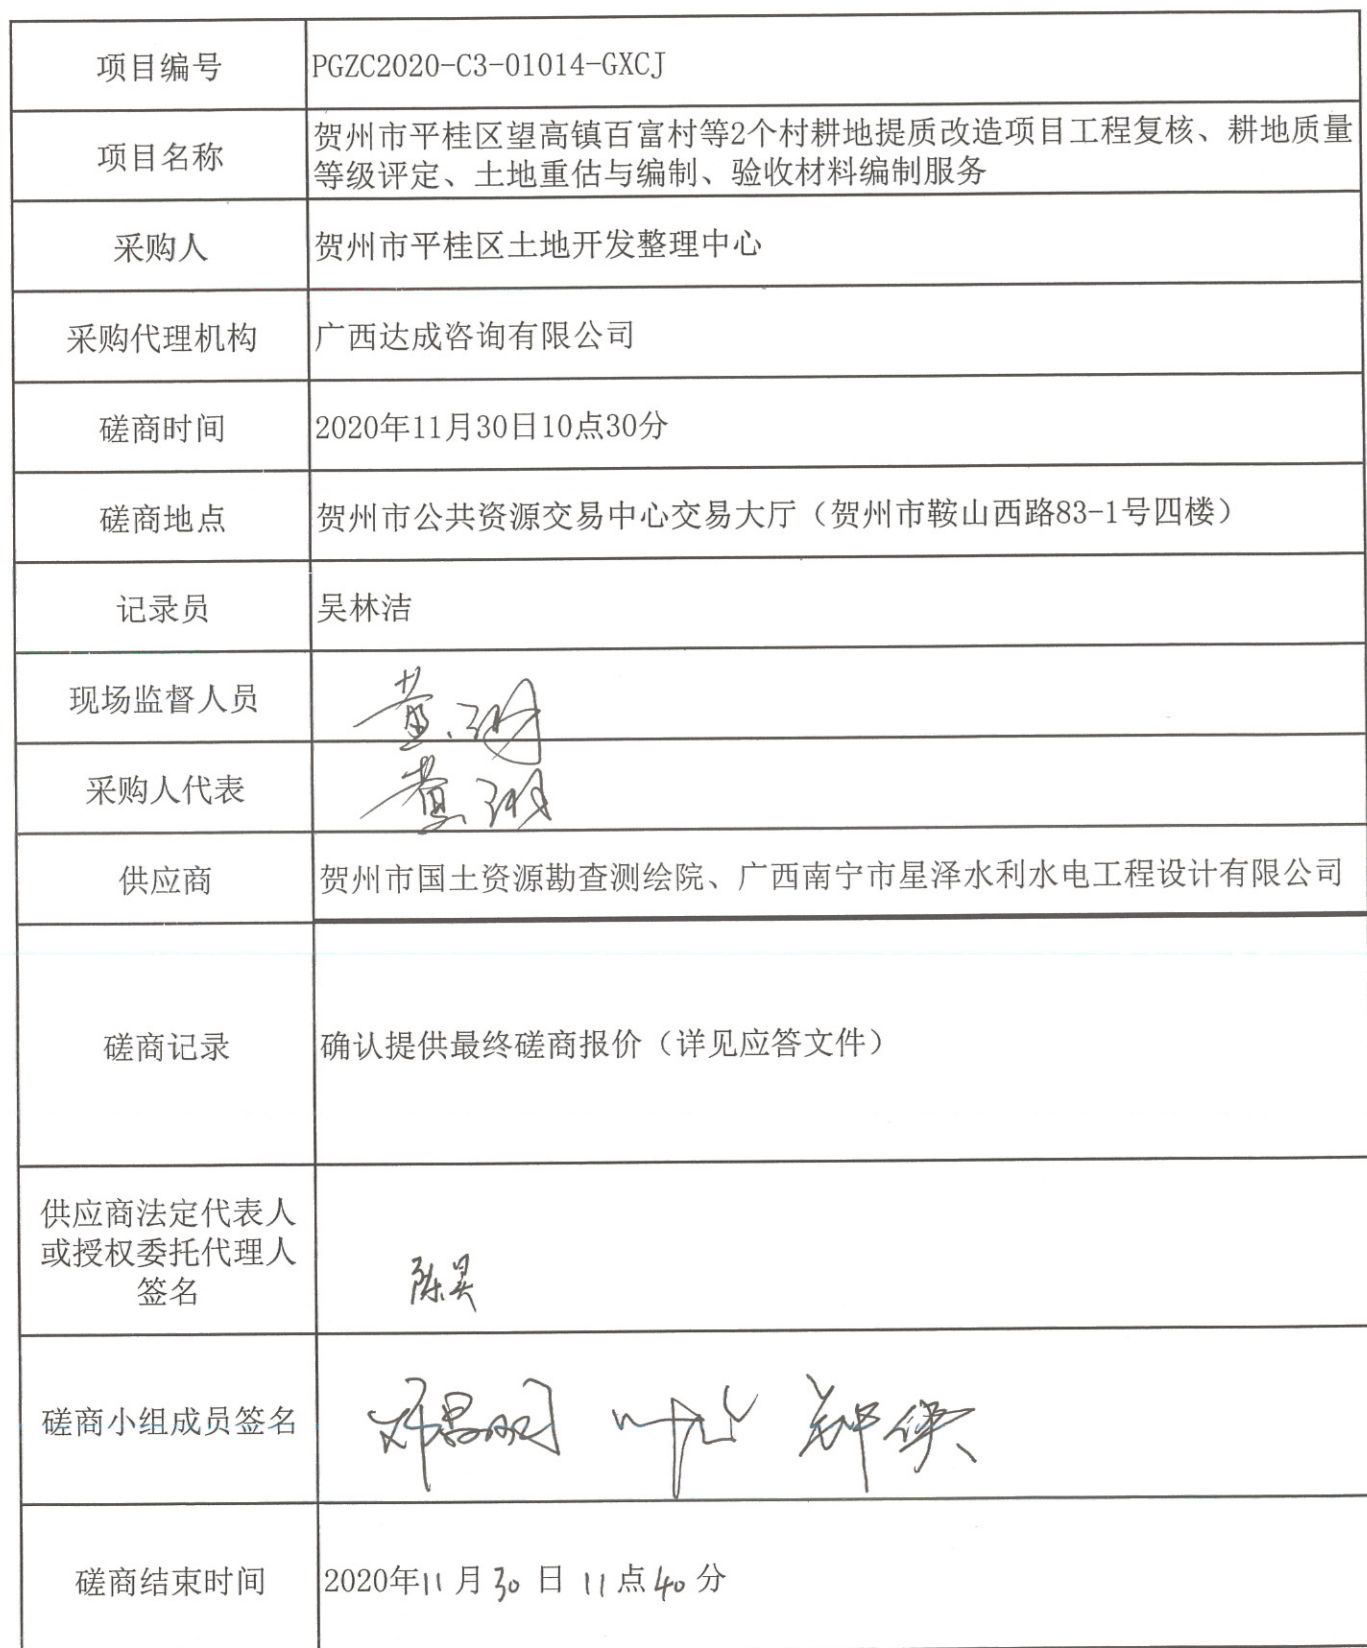 项目编号
PGZC2020-C3-01014-GXCJ
项目名称
贺州市平桂区望高镇百富村等2个村耕地提质改造项目工程复核、耕地质量
等级评定、土地重估与编制、验收材料编制服务
采购人
贺州市平桂区土地开发整理中心
采购代理机构
广西达成咨询有限公司
磋商时间
2020年11月30日10点30分
磋商地点
贺州市公共资源交易中心交易大厅（贺州市鞍山西路83-1号四楼）
记录员
吴林洁
现场监督人员
采购人代表
供应商
贺州市国土资源勘查测绘院、广西南宁市星泽水利水电工程设计有限公司
磋商记录
确认提供最终磋商报价（详见应答文件）
供应商法定代表人
或授权委托代理人
签名
陈昊
磋商小组成员签名
磋商结束时间
2020年11月30日11点40分